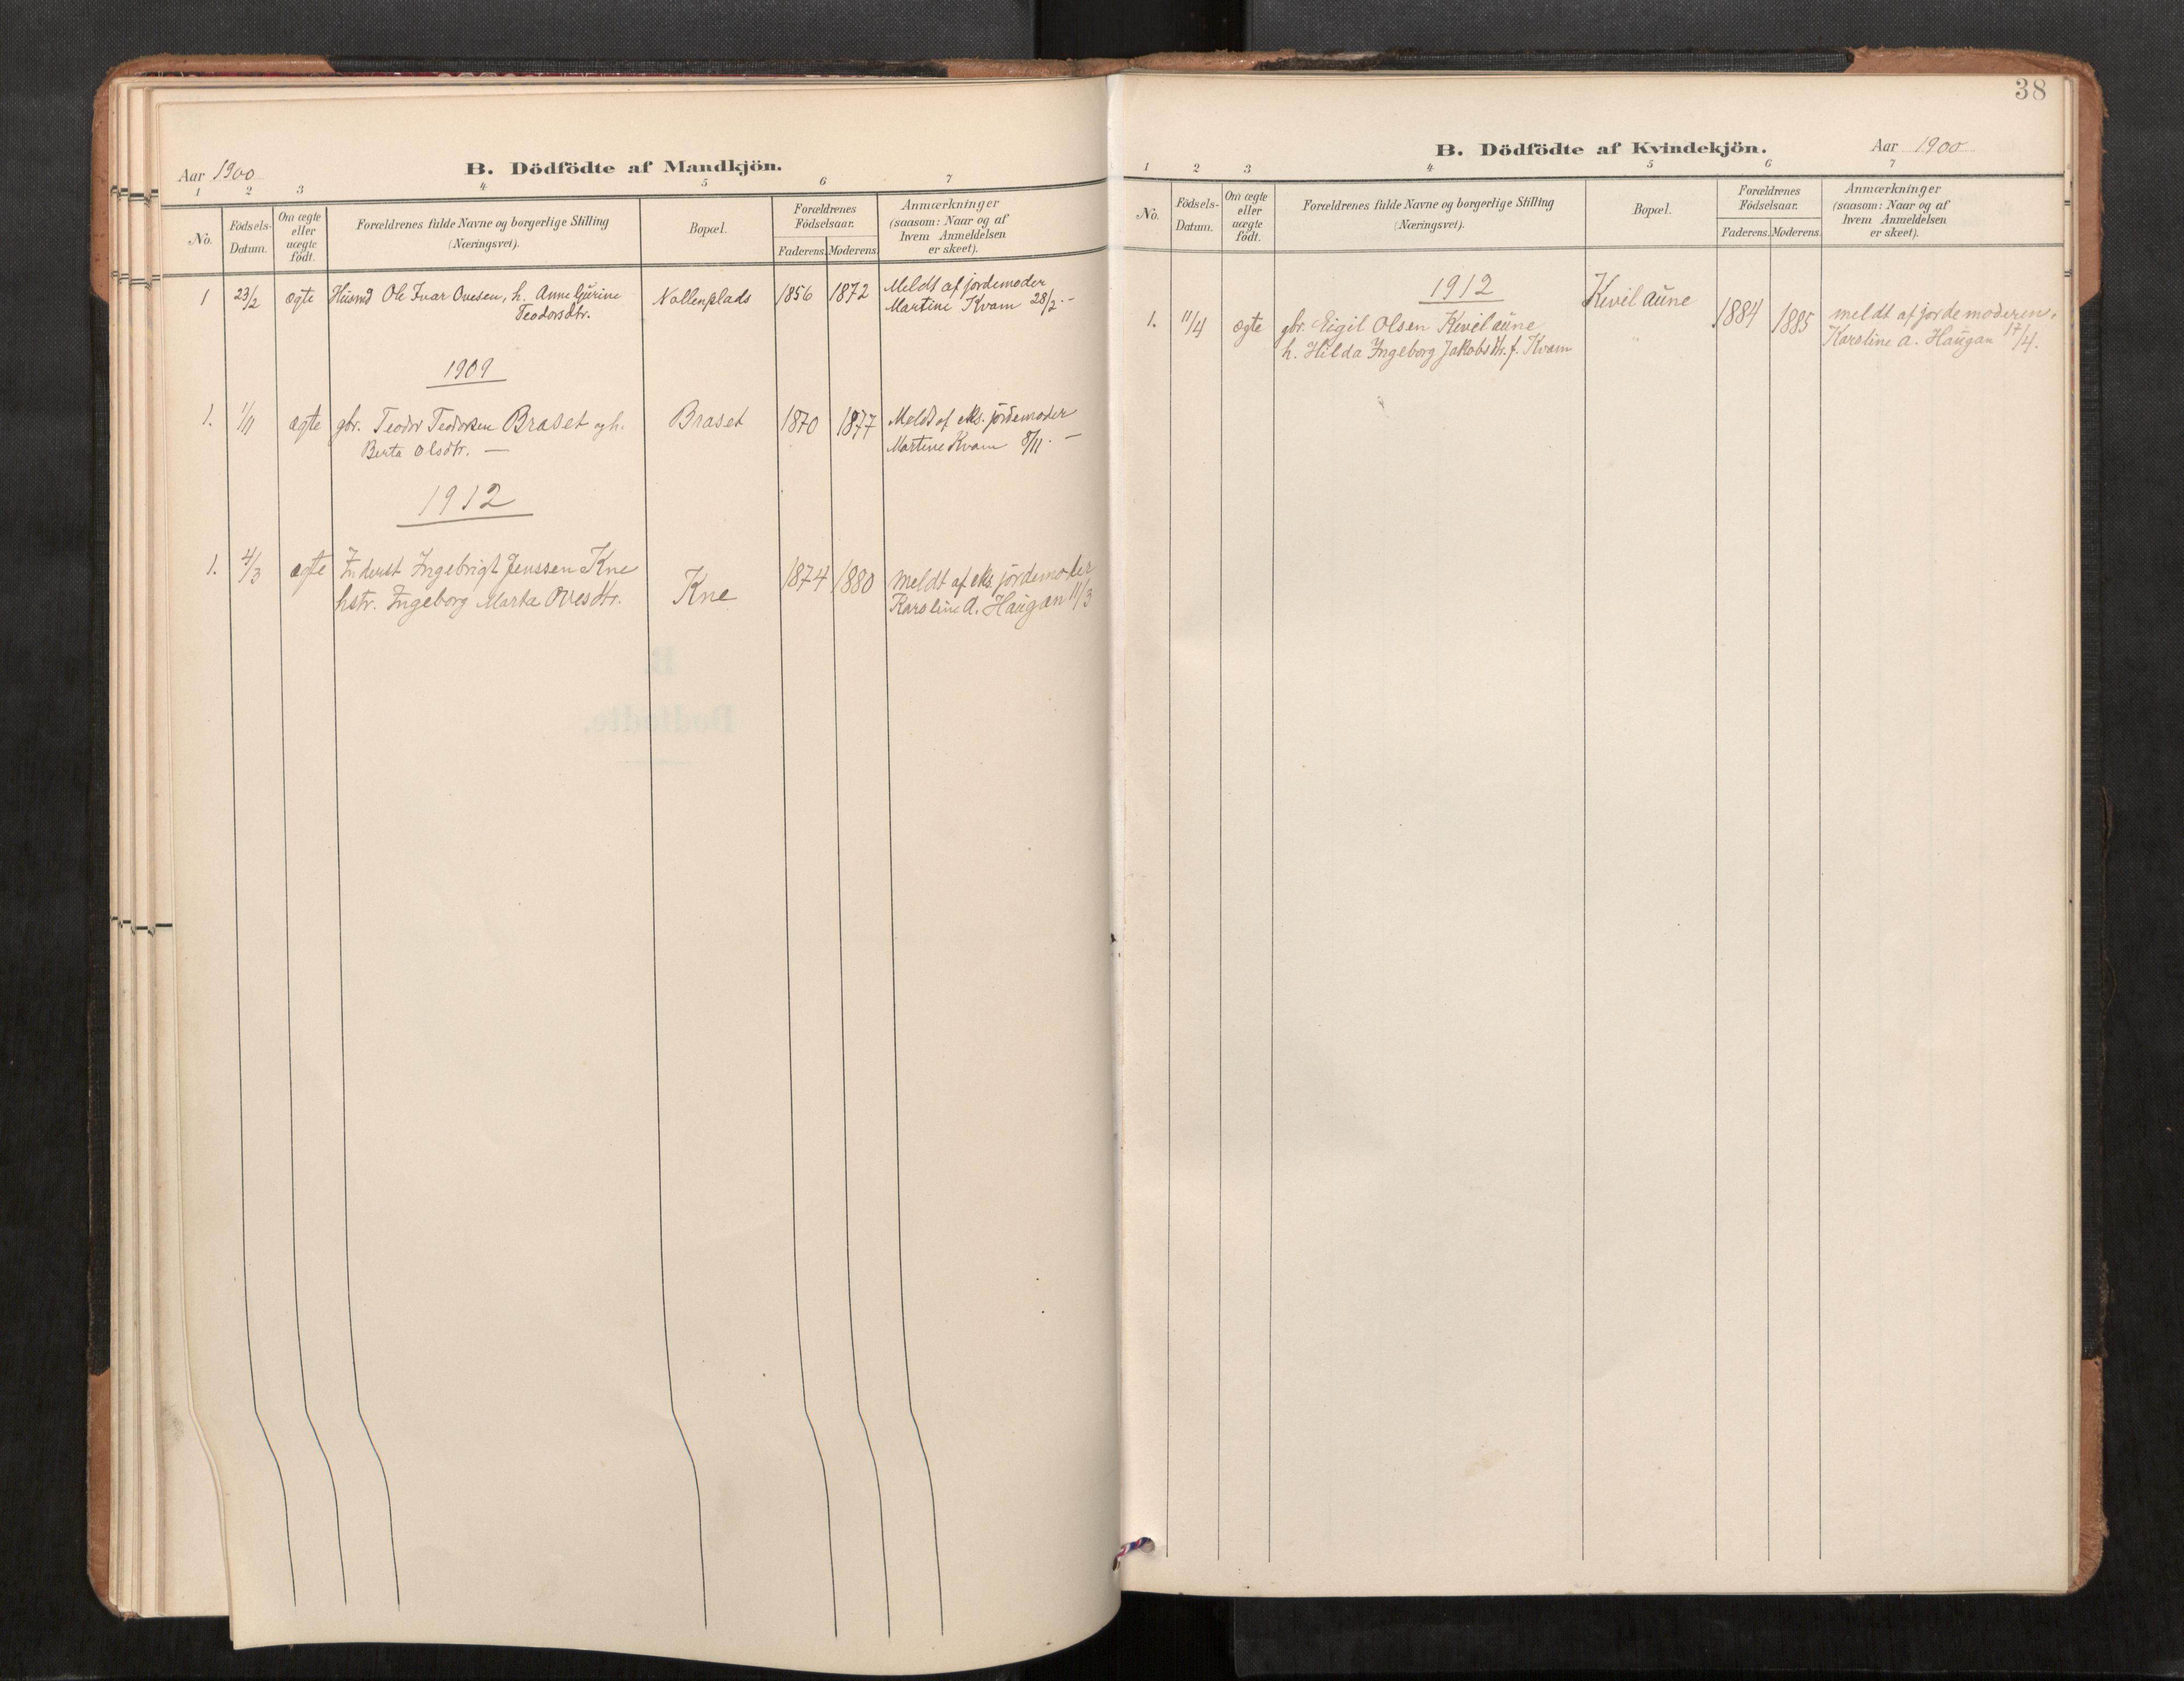 Aar 1900
B. Dödfödte af Mandkjön.
1 2 3 4 5 6 7
No.
Födsels-
Datum.
Om ægte
eller
uægte
födt.
Forældrenes fulde Navne og borgerlige Stilling
(Næringsvei).
Bopæl.
Forældrenes
Födselsaar.
Faderens. Moderens.
Anmærkninger
(saasom: Naar og af
hvem Anmeldelsen
er skeet).
1 23/2 ægte Husmd Ole Ivar Ovesen, h. Anne Gurine
Teodorsdtr.
Nollenplads 1856 1872
Meldt af jordemoder
Martine Kvam 28/2.-
1909
1. 1/11 ægte gbr. Teodor Teodorsen Braset og h.
Berta Olsdtr. —
Braset 1870 1877
Meldt af eks. jordemoder
Martine Kvam 8/11. —
1912
1. 4/3 ægte Inderst Ingebrigt Jenssen Kne
hstr. Ingeborg Marta Ovesdtr.
Kne 1874 1880
meldt af eks. jordemoder
Karoline A. Haugan 11/3
B.
Dödfödte.
38
B. Dödfödte af Kvindekjön.
Aar 1900
1 2 3 4 5 6 7
No.
Födsels-
Datum.
Om ægte
eller
uægte
födt.
Forældrenes fulde Navne og borgerlige Stilling
(Næringsvei).
Bopæl.
Forældrenes
Födselsaar.
Faderens. Moderens.
Anmærkninger
(saasom: Naar og af
hvem Anmeldelsen
er skeet).
1912
1. 11/4 ægte gbr. Eigil Olsen Kvelaune
h. Hilda Ingeborg Jakobsdtr. f. Kvam
1884 1885
meldt af jordemoderen.
Karoline A. Haugan 17/4.